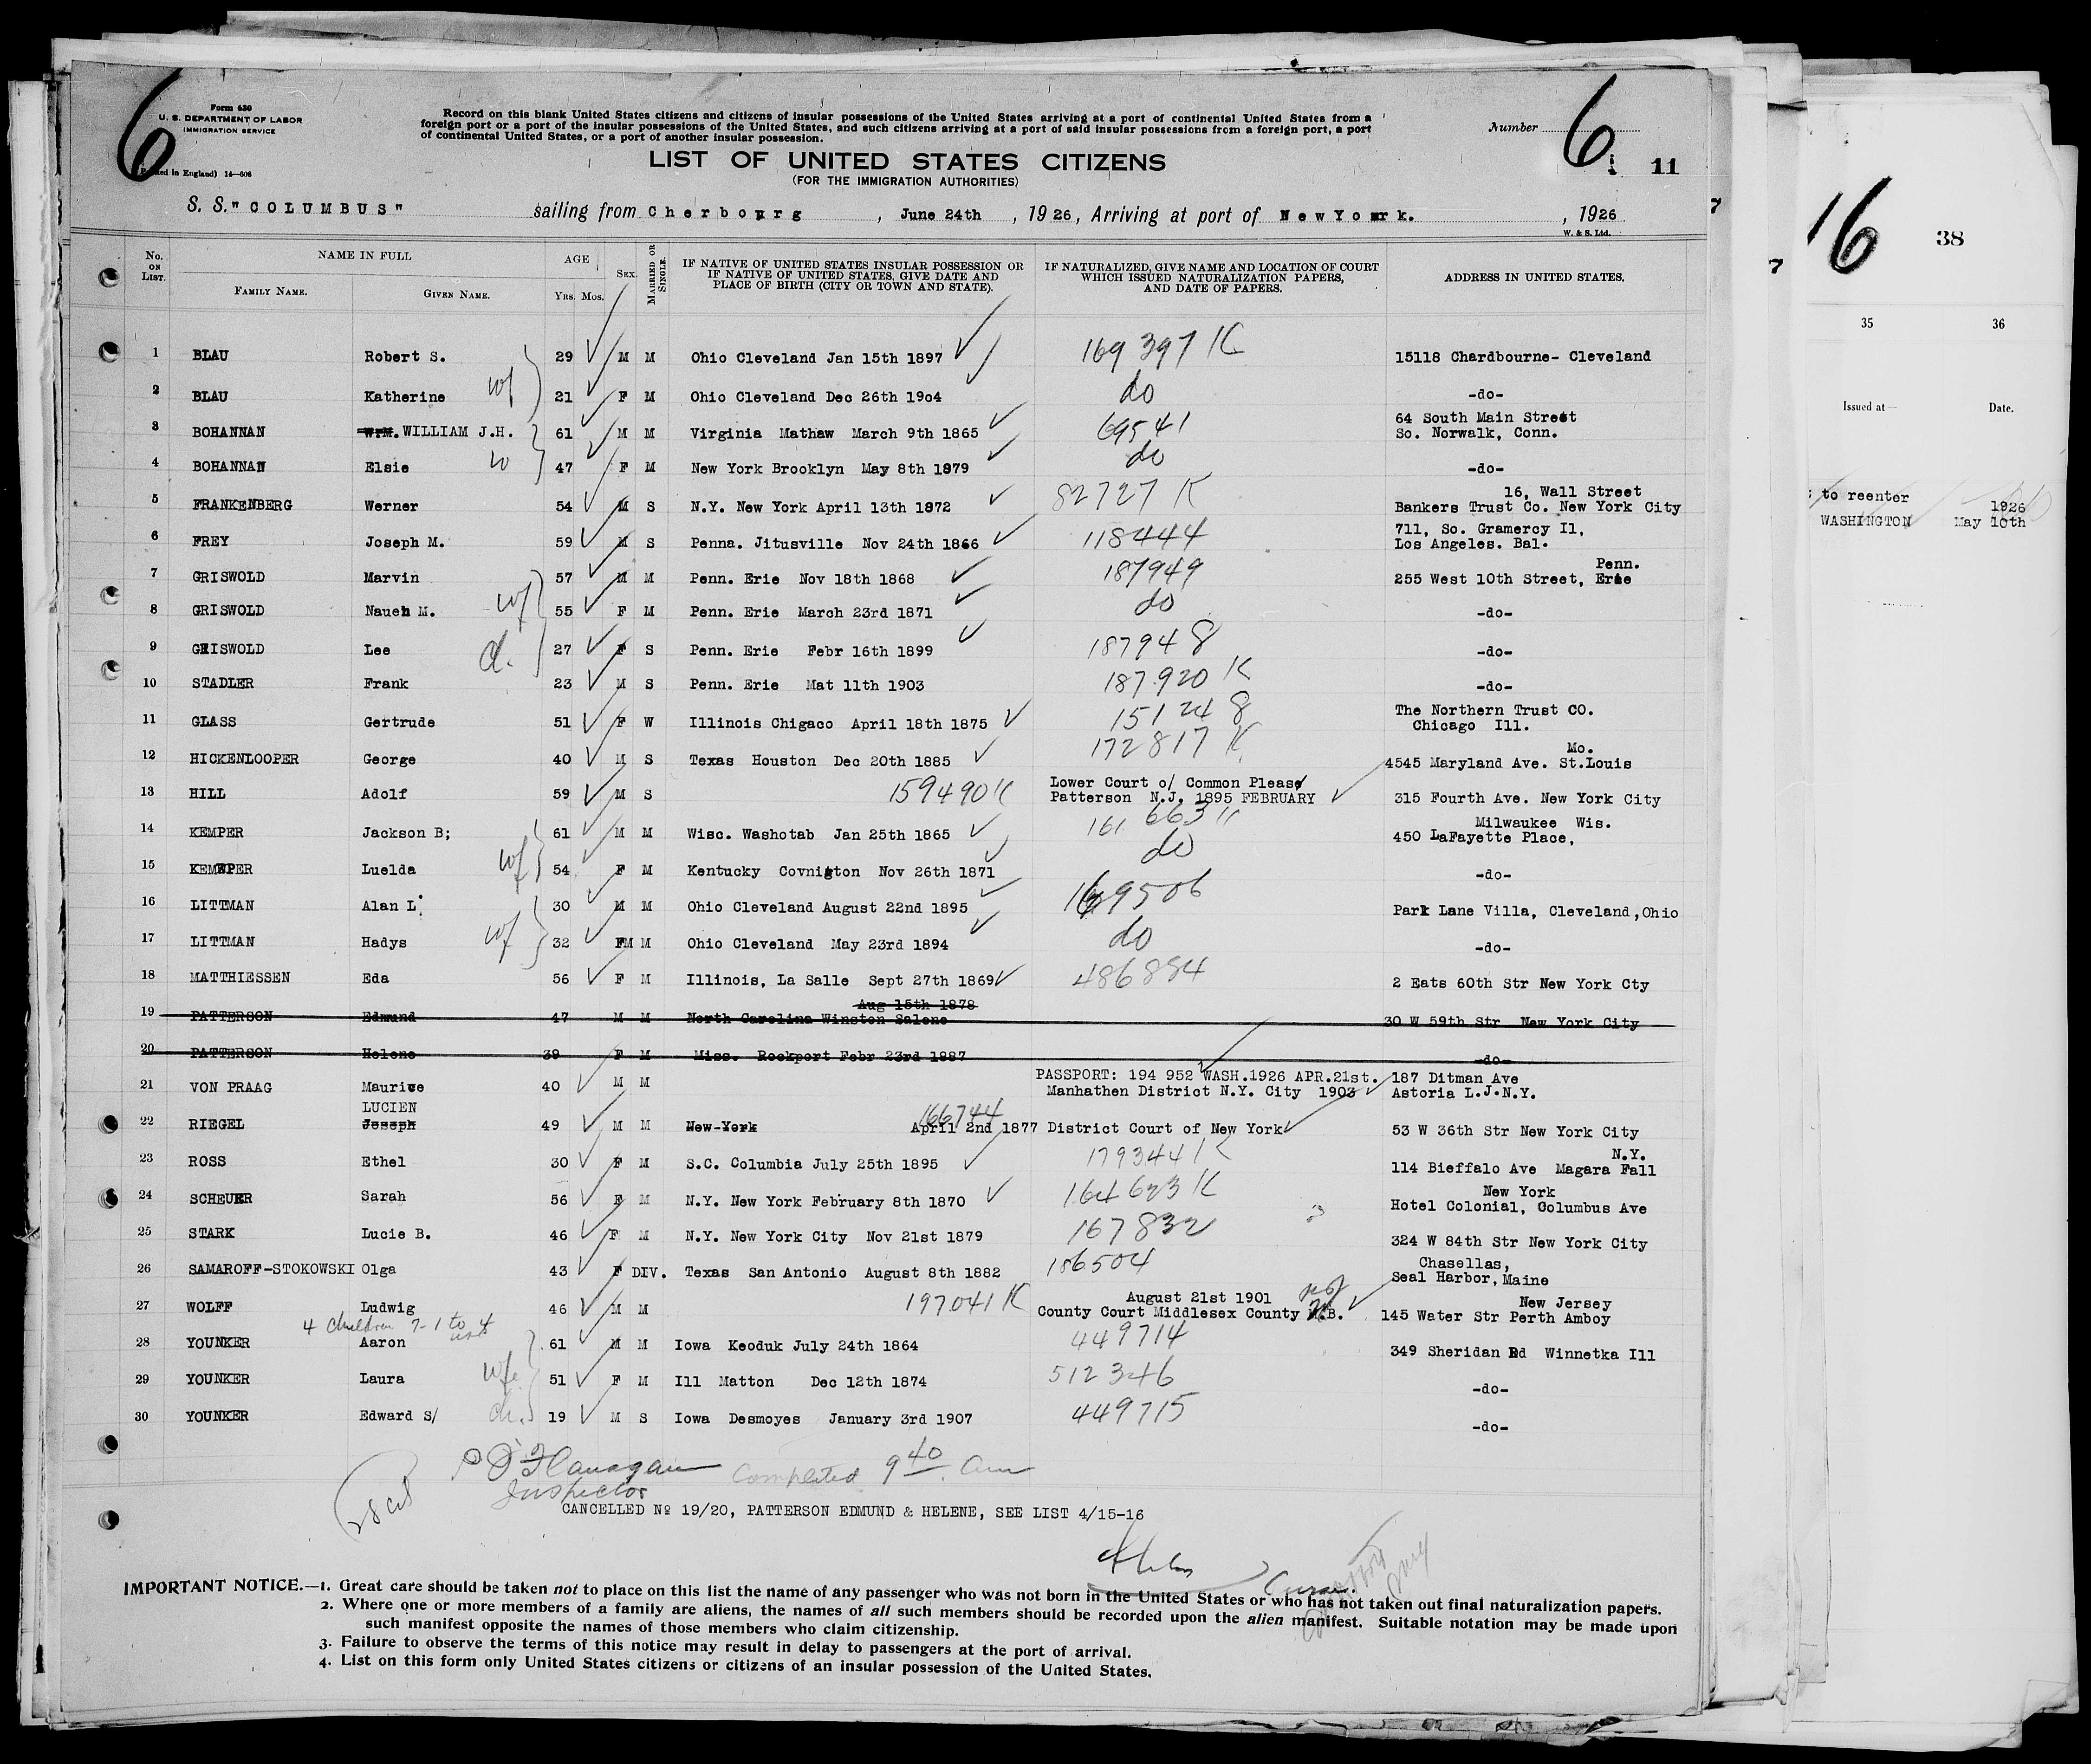 6
Form 630
U. S. DEPARTMENT OF LABOR
IMMIGRATION SERVICE
ed in England) 14—606
Record on this blank United States citizens and citizens of insular possessions of the United States arriving at a port of continental United States from a
foreign port or a port of the insular possessions of the United States, and such citizens arriving at a port of said insular possessions from a foreign port, a port
of continental United States, or a port of another insular possession.
Number 6 11
LIST OF UNITED STATES CITIZENS
(FOR THE IMMIGRATION AUTHORITIES)
S. S. "COLUMBUS" sailing from Cherbourg, June 24th, 1926, Arriving at port of New York., 1926
W. & S. Ltd.
No. ON LIST. NAME IN FULL FAMILY NAME. GIVEN NAME. AGE YRS. MOS. SEX. MARRIED OR SINGLE. IF NATIVE OF UNITED STATES INSULAR POSSESSION OR IF NATIVE OF UNITED STATES, GIVE DATE AND PLACE OF BIRTH (CITY OR TOWN AND STATE). IF NATURALIZED, GIVE NAME AND LOCATION OF COURT WHICH ISSUED NATURALIZATION PAPERS, AND DATE OF PAPERS. ADDRESS IN UNITED STATES.
1 BLAU Robert S. 29 M M Ohio Cleveland Jan 15th 1897 169397 K 15118 Chardbourne- Cleveland
2 BLAU Katherine wf 21 F M Ohio Cleveland Dec 26th 19o4 do -do-
3 BOHANNAN W.M. WILLIAM J.H. 61 M M Virginia Mathaw March 9th 1865 69541 64 South Main Street
So. Norwalk, Conn.
4 BOHANNAN Elsie w 47 F M New York Brooklyn May 8th 1879 do -do-
5 FRANKENBERG Werner 54 M S N.Y. New York April 13th 1872 82727 K 16, Wall Street
Bankers Trust Co. New York City
6 FREY Joseph M. 59 M S Penna. Jitusville Nov 24th 1866 118444 711, So. Gramercy Il,
Los Angeles. Bal.
7 GRISWOLD Marvin 57 M M Penn. Erie Nov 18th 1868 187949 Penn.
255 West 10th Street, Erie
8 GRISWOLD Naueh M. wf 55 F M Penn. Erie March 23rd 1871 do -do-
9 GRISWOLD Lee d. 27 F S Penn. Erie Febr 16th 1899 187948 -do-
10 STADLER Frank 23 M S Penn. Erie Mat 11th 1903 187920 K -do-
11 GLASS Gertrude 51 F W Illinois Chigaco April 18th 1875 151248 The Northern Trust CO.
Chicago Ill.
12 HICKENLOOPER George 40 M S Texas Houston Dec 20th 1885 172817 K Mo.
4545 Maryland Ave. St.Louis
13 HILL Adolf 59 M S 159490 K Lower Court o/ Common Please
Patterson N.J. 1895 FEBRUARY 315 Fourth Ave. New York City
14 KEMPER Jackson B; 61 M M Wisc. Washotab Jan 25th 1865 161663 K Milwaukee Wis.
450 LaFayette Place,
15 KEMPER Luelda wf 54 F M Kentucky Covnigton Nov 26th 1871 do -do-
16 LITTMAN Alan L. 30 M M Ohio Cleveland August 22nd 1895 169506 Park Lane Villa, Cleveland,Ohio
17 LITTMAN Hadys wf 32 FM M Ohio Cleveland May 23rd 1894 do -do-
18 MATTHIESSEN Eda 56 F M Illinois, La Salle Sept 27th 1869 486884 2 Eats 60th Str New York Cty
Aug 15th 1878
19 PATTERSON Edmund 47 M M North Carolina Winston Salene 30 W 59th Str New York City
20 PATTERSON Helene 39 F M Miss. Rockport Febr 23rd 1887 -do-
21 VON PRAAG Maurice 40 M M PASSPORT: 194 952 WASH.1926 APR.21st. 187 Ditman Ave
Manhathen District N.Y. City 1903 Astoria L.J.N.Y.
LUCIEN
22 RIEGEL Joseph 49 M M New-York 166744 April 2nd 1877 District Court of New York 53 W 36th Str New York City
23 ROSS Ethel 30 F M S.C. Columbia July 25th 1895 179344 K N.Y.
114 Bieffalo Ave Magara Fall
24 SCHEUER Sarah 56 F M N.Y. New York February 8th 1870 164623 K New York
Hotel Colonial, Columbus Ave
25 STARK Lucie B. 46 F M N.Y. New York City Nov 21st 1879 167832 324 W 84th Str New York City
26 SAMAROFF-STOKOWSKI Olga 43 F DIV. Texas San Antonio August 8th 1882 186504 Chasellas,
Seal Harbor, Maine
27 WOLFF Ludwig 46 M M 197041 K August 21st 1901 New Jersey
County Court Middlesex County N.B. 145 Water Str Perth Amboy
4 children 7-1 to 4
28 YOUNKER Aaron 61 M M Iowa Keoduk July 24th 1864 449714 349 Sheridan Rd Winnetka Ill
29 YOUNKER Laura wfe 51 F M Ill Matton Dec 12th 1874 512346 -do-
30 YOUNKER Edward S/ ch. 19 M S Iowa Desmoyes January 3rd 1907 449715 -do-
P O'Flanagan Completed 9 40 am
Inspector
CANCELLED Nº 19/20, PATTERSON EDMUND & HELENE, SEE LIST 4/15-16
IMPORTANT NOTICE.—1. Great care should be taken not to place on this list the name of any passenger who was not born in the United States or who has not taken out final naturalization papers.
2. Where one or more members of a family are aliens, the names of all such members should be recorded upon the alien manifest. Suitable notation may be made upon
such manifest opposite the names of those members who claim citizenship.
3. Failure to observe the terms of this notice may result in delay to passengers at the port of arrival.
4. List on this form only United States citizens or citizens of an insular possession of the United States.
7
7
16 38
35 36
Issued at— Date.
to reenter 1926
WASHINGTON May 10th